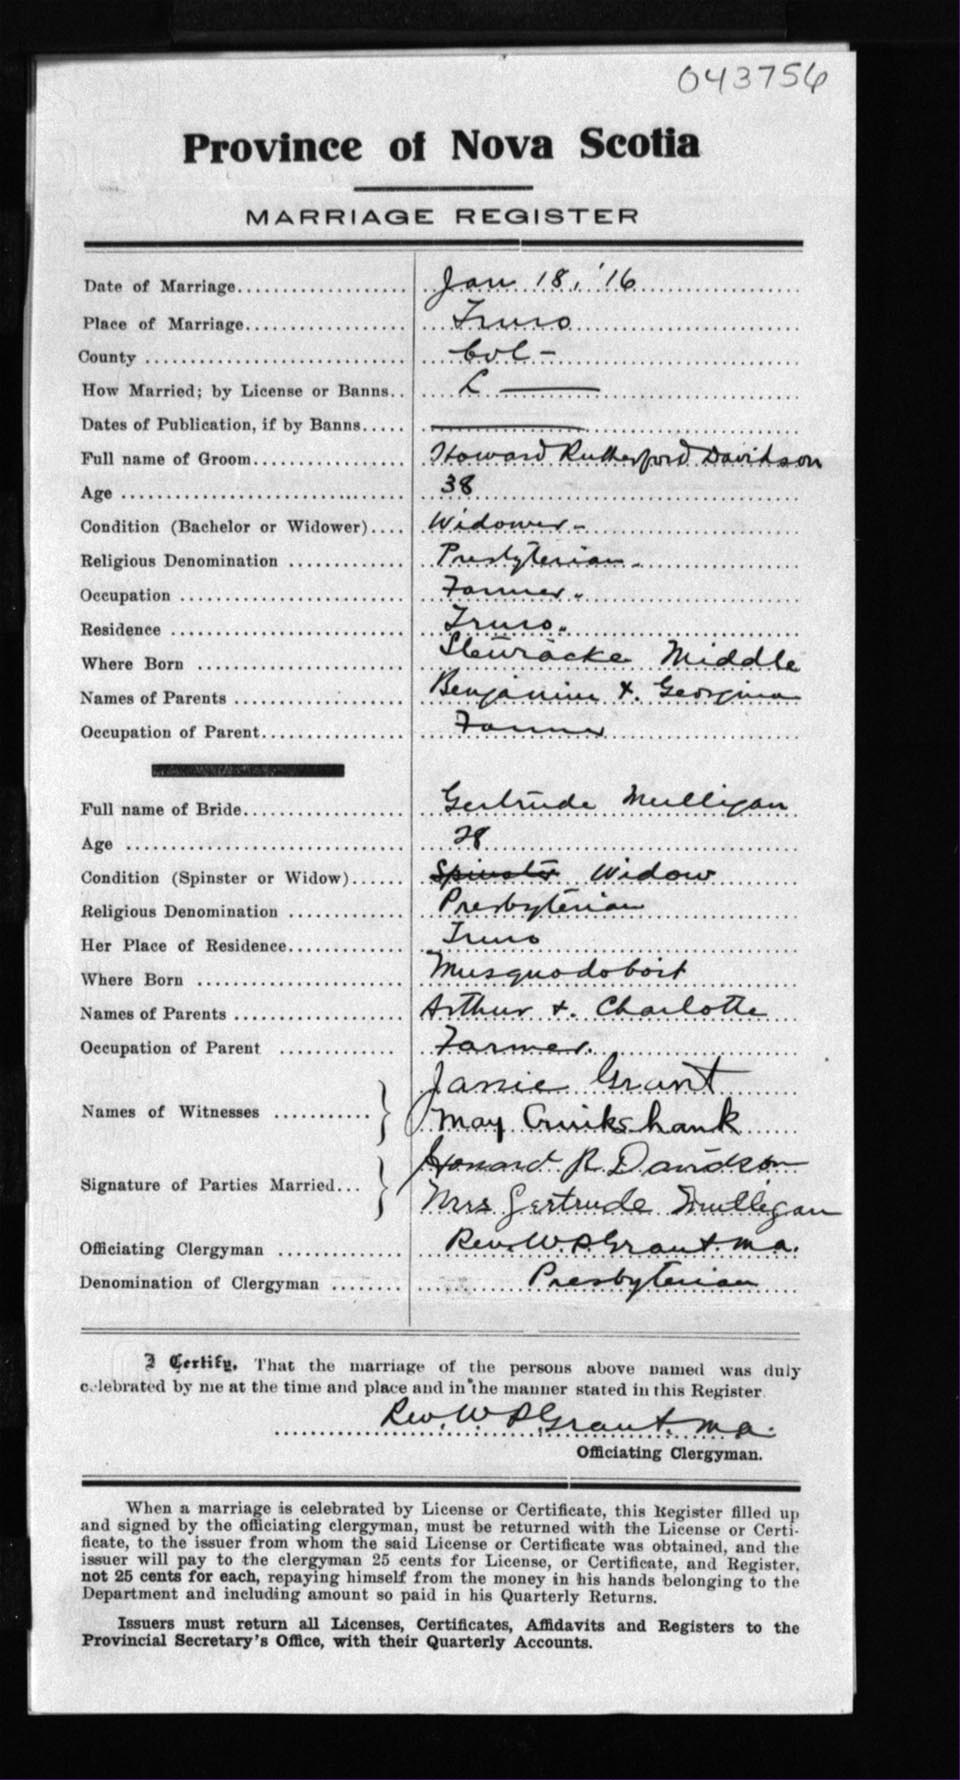 043756
Province of Nova Scotia
MARRIAGE REGISTER
Date of Marriage Jan 18, '16
Place of Marriage Truro
County Col -
How Married; by License or Banns L
Dates of Publication, if by Banns
Full name of Groom Howard Rutherford Davidson
Age 38
Condition (Bachelor or Widower) Widower -
Religious Denomination Presbyterian.
Occupation Farmer.
Residence Truro.
Where Born Stewiacke Middle
Names of Parents Benjamin &. Georgina
Occupation of Parent Farmer
Full name of Bride Gertrude Mulligan
Age 28
Condition (Spinster or Widow) Spinster Widow
Religious Denomination Presbyterian
Her Place of Residence Truro
Where Born Musquodoboit
Names of Parents Arthur &. Charlotte
Occupation of Parent Farmer.
Janie Grant
Names of Witnesses
May Cruikshank
Howard R Davidson
Signature of Parties Married
Mrs Gertrude Mulligan
Officiating Clergyman Rev. W P Grant. M a.
Denomination of Clergyman Presbyterian
I Certify, That the marriage of the persons above named was duly
celebrated by me at the time and place and in the manner stated in this Register
Rev. W P Grant. M a.
Officiating Clergyman.
When a marriage is celebrated by License or Certificate, this Register filled up
and signed by the officiating clergyman, must be returned with the License or Certi-
ficate, to the issuer from whom the said License or Certificate was obtained, and the
issuer will pay to the clergyman 25 cents for License, or Certificate, and Register,
not 25 cents for each, repaying himself from the money in his hands belonging to the
Department and including amount so paid in his Quarterly Returns.
Issuers must return all Licenses, Certificates, Affidavits and Registers to the
Provincial Secretary's Office, with their Quarterly Accounts.